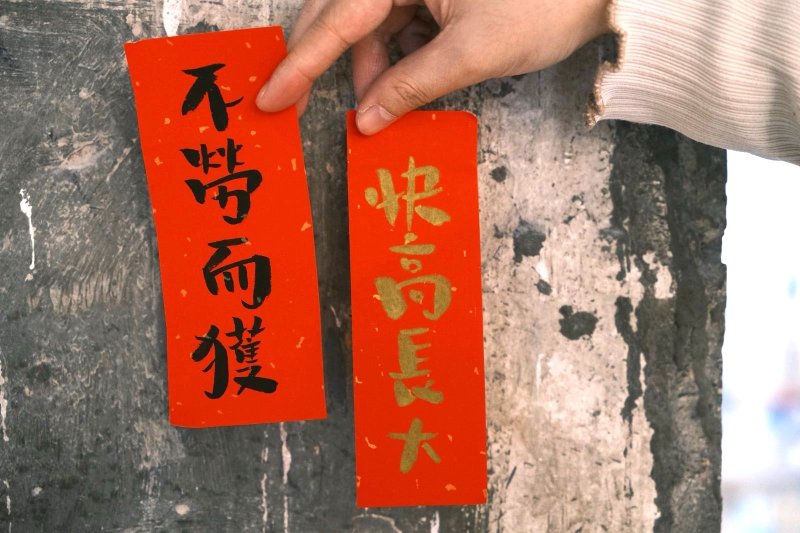 不勞而獲
快高長大